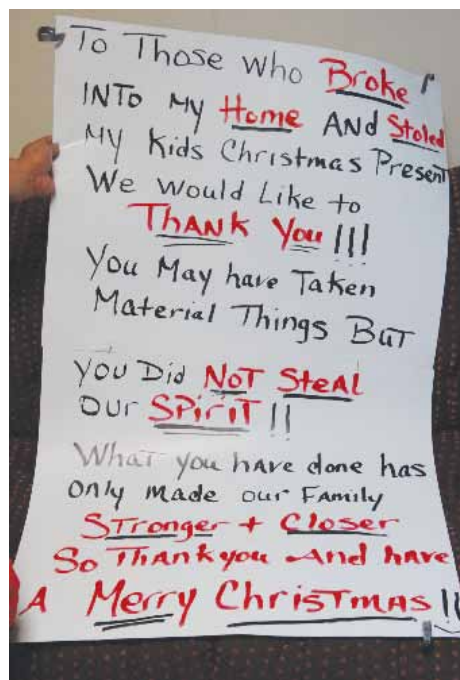 To Those who Broke
INTo My Home AND Stoled
My Kids Christmas Present
We Would Like to
THANK You!!!
You May have Taken
Material Things But
you Did NoT SteAL
our SPiriT!!
What you have done has
only made our Family
Stronger + Closer
So THANK you And have
A Merry Christmas!!